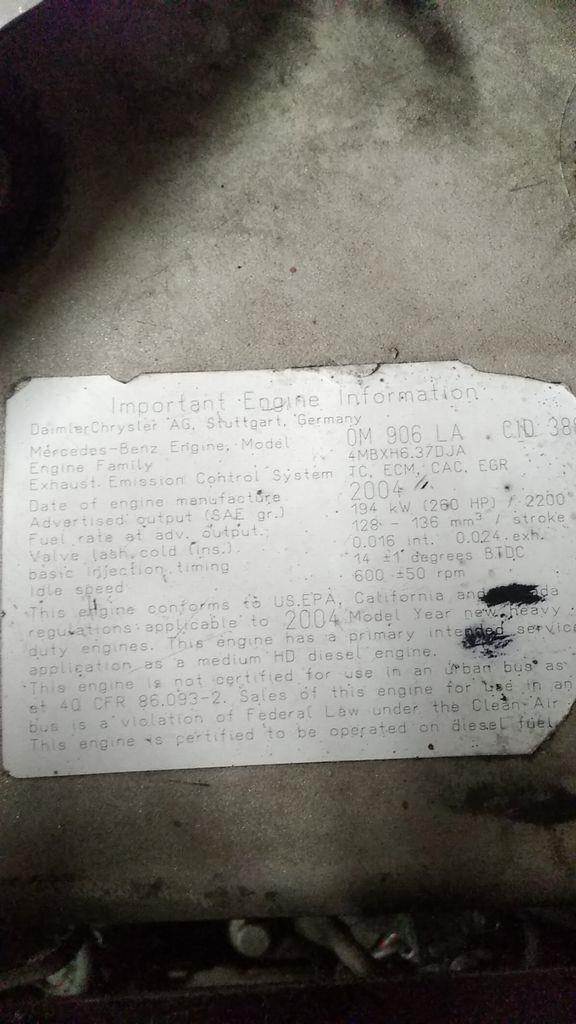 Important Engine Information
DaimlerChrysler AG, Stuttgart, Germany
Mercedes-Benz Engine, Model OM 906 LA CID 38
Engine Family 4MBXH6.37DJA
Exhaust Emission Control System TC, ECM, CAC, EGR
Date of engine manufacture 2004
Advertised output (SAE gr.) 194 kW (260 HP) / 2200
Fuel rate at adv. output. 128 - 136 mm³ / stroke
Valve lash cold (ins.). 0.016 int. 0.024 exh.
basic injection timing 14 ±1 degrees BTDC
Idle speed 600 ±50 rpm
This engine conforms to US.EPA, California and
regulations applicable to 2004 Model Year new heavy
duty engines. This engine has a primary intended service
application as a medium HD diesel engine.
This engine is not certified for use in an urban bus as
at 40 CFR 86.093-2. Sales of this engine for use in an
bus is a violation of Federal Law under the Clean Air
This engine is certified to be operated on diesel fuel.